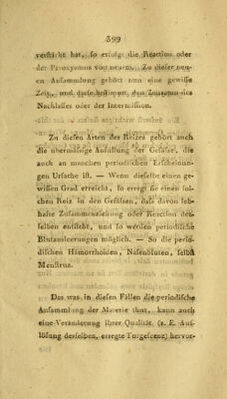 399
verstärkt hat, so erfolgt die Reaction oder
der Paroxysmus von neuem. Zu dieser neu-
en Ansammlung gehört nun eine gewisse
Zeit, und diese bestimmt den Zeitraum des
Nachlasses oder der Intermission.
Zu diesen Arten des Reizes gehört auch
die übermäsige Anfüllung der Gefässe, die
auch an manchen periodischen Erscheinun-
gen Ursache ist. — Wenn dieselbe einen ge-
wissen Grad erreicht, so erregt sie einen sol-
chen Reiz in den Gefässen, daß davon leb-
hafte Zusammenziehung oder Reaction der-
selben entsteht, und so werden periodische
Blutausleerungen möglich. — So die perio-
dischen Hämorrhoiden, Nasenbluten, selbst
Menstrua.
Das was in diesen Fällen die periodische
Ansammlung der Materie thut, kann auch
eine Veränderung ihrer Qualität (z. E. Auf-
lösung derselben, erregte Turgescenz) hervor-